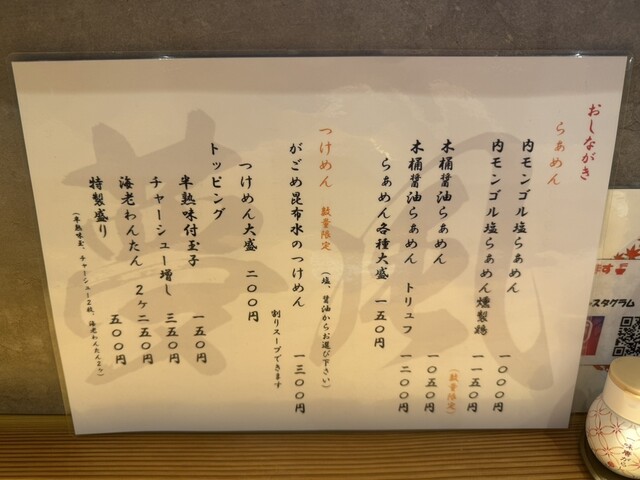 おしながき
らぁめん
内モンゴル塩らぁめん 一〇〇〇円
内モンゴル塩らぁめん 燻製鶏 一一五〇円
(数量限定)
木桶醤油らぁめん 一〇五〇円
木桶醤油らぁめん トリュフ 一二〇〇円
らぁめん各種大盛 一五〇円
つけめん 数量限定 (塩、醤油からお選び下さい)
がごめ昆布水のつけめん 一三〇〇円
割りスープできます
つけめん大盛 二〇〇円
トッピング
半熟味付玉子 一五〇円
チャーシュー増し 三五〇円
海老わんたん 2ケ 二五〇円
特製盛り 五〇〇円
(半熟味玉、チャーシュー2枚、海老わんたん2ケ)
夢風
ます
スタグラム